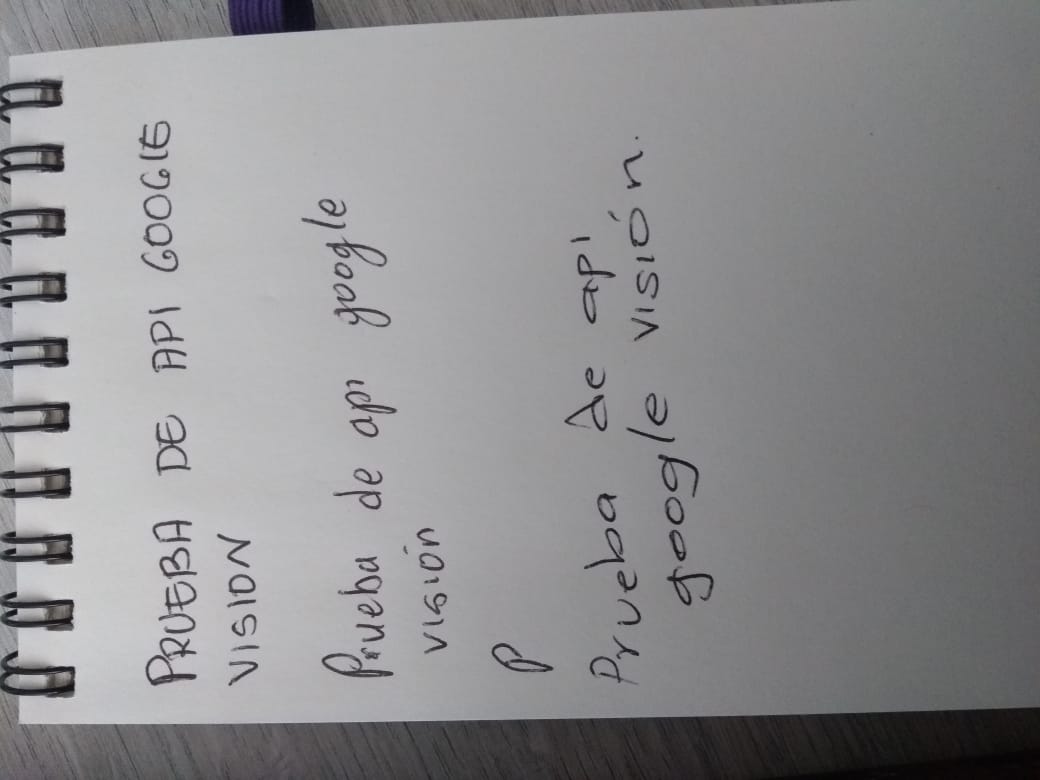 PRUEBA DE API GOOGLE
VISION
Prueba de api google
visión
P
Prueba de api
google visión.